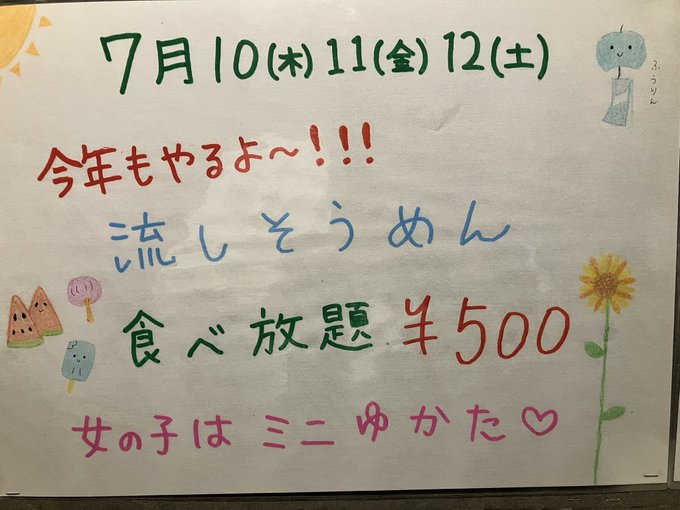 7月10(木)11(金)12(土)
ふうりん
今年もやるよ〜!!!
流しそうめん
食べ放題 ¥500
女の子は ミニ ゆかた♡